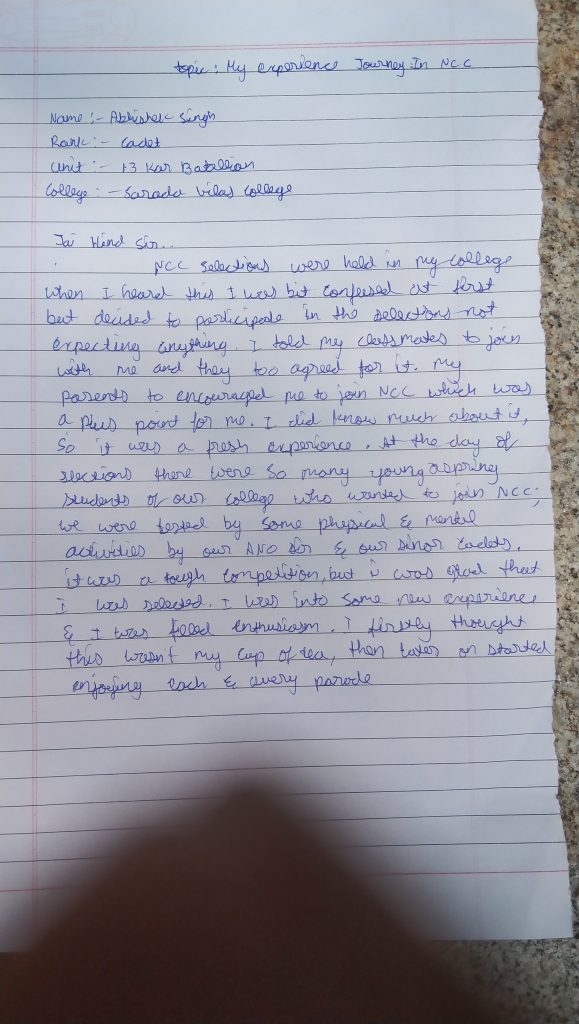 topic: My experience Journey In NCC
Name :- Abhishek Singh
Rank :- Cadet
Unit :- 13 Kar Batallion
College :- Sarada Vilas College
Jai Hind Sir..
NCC selections were held in my college
when I heard this I was bit confused at first
but decided to participate in the selections not
expecting anything. I told my classmates to join
with me and they too agreed for it. My
parents to encouraged me to join NCC which was
a plus point for me. I did know much about it,
So it was a fresh experience. At the day of
slections there were so many young aspring
students of our college who wanted to join NCC;
we were tested by some physical & mental
activities by our ANO Sir & our Sinor Cadets.
it was a tough competition, but i was glad that
I was selected. I was into some new experience
& I was filled enthusiasm. I firstly thought
this wasn't my cup of tea, then later on started
enjoying each & every parade